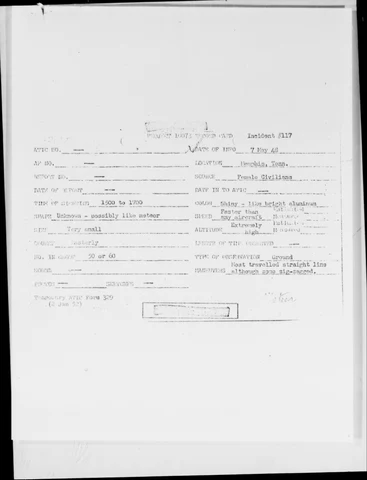 Incident #117
ATIC NO. — DATE OF INFO 7 May 48
AF NO. — LOCATION Memphis, Tenn.
REPORT NO. — SOURCE Female Civilians
DATE OF REPORT — DATE IN TO ATIC —
TIME OF SIGHTING 1500 to 1700 COLOR Shiny - like bright aluminum
SHAPE Unknown - possibly like meteor SPEED Faster than any aircraft
SIZE Very small ALTITUDE Extremely high
COURSE Easterly LENGTH OF TIME OBSERVED —
NO. IN GROUP 50 or 60 TYPE OF OBSERVATION Ground
SOUND — MANEUVERS Most travelled straight line although some zig-zagged.
PHOTOS — SKETCHES —
Temporary ATIC Form 329
(2 Jan 52)